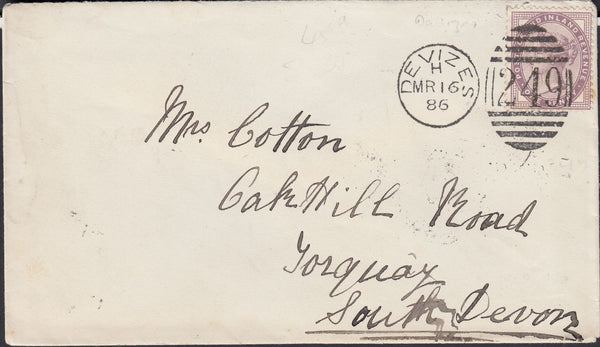 POSTAGE AND INLAND REVENUE
DEVIZES
H
MR 16
86
249
Mrs Cotton
Oak Hill Road
Torquay
South Devon